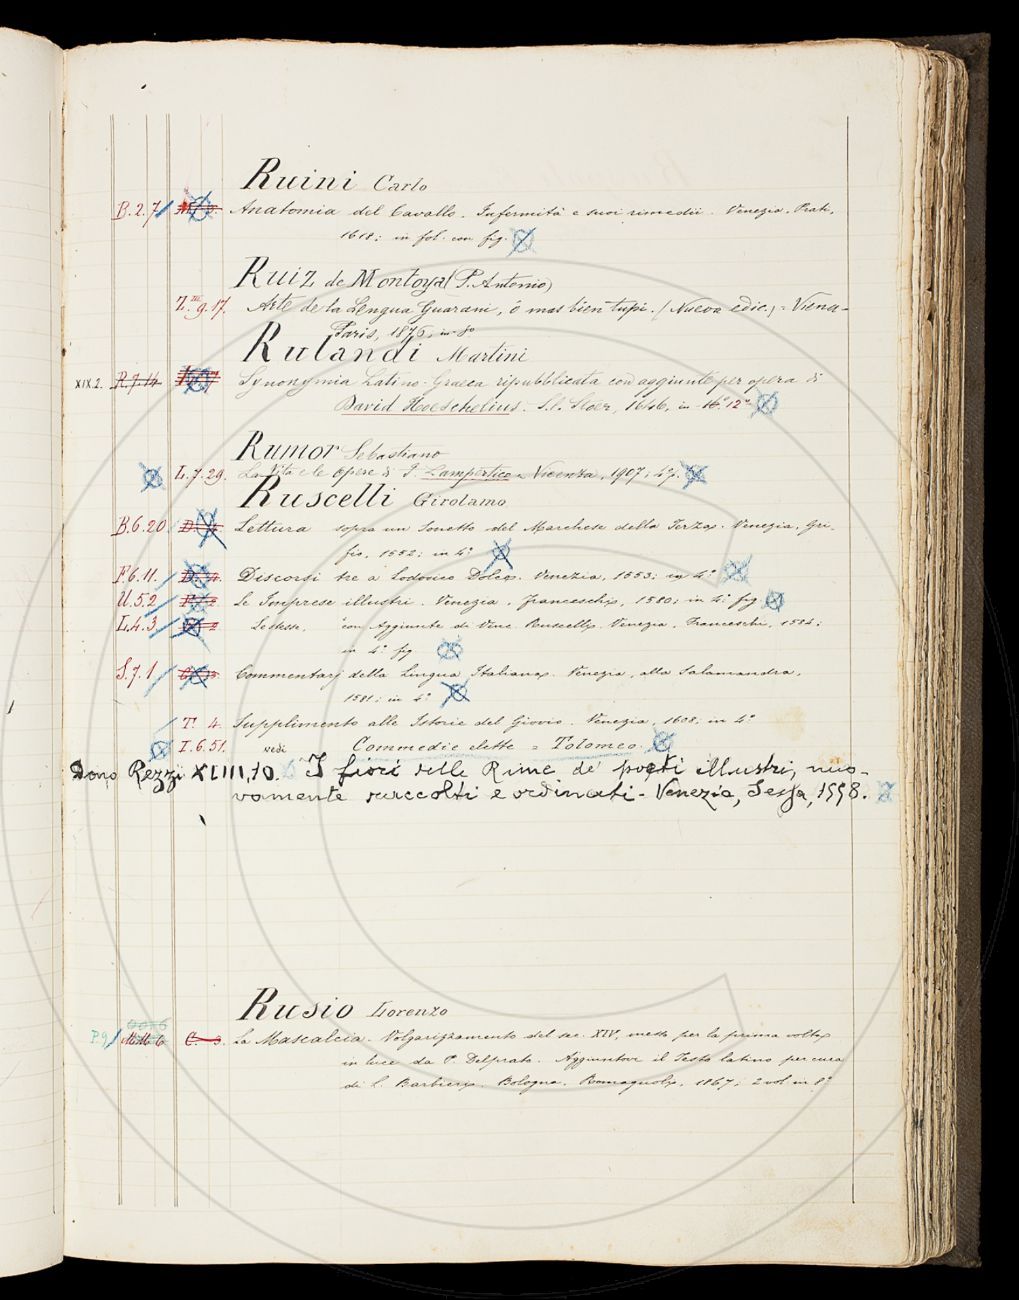 Ruini Carlo
B.2.7 Anatomia del Cavallo. Infermità e suoi rimedii. Venezia, Prati,
1618; in fol. con fig.
Ruiz de Montoya (P. Antonio)
Z.III g.17. Arte de la Lengua Guarani, ó mas bien tupi. (Nueva edic.) = Viena-
Paris, 1876, in 8°
Rulandi Martini
XIX.2. R.7.14 Synonymia Latino-Graeca ripubblicata con aggiunte per opera di
David Hoeschelius. S.l. Stoer, 1646, in 16.° 12°
Rumor Sebastiano
L.7.29. La Vita e le opere di F. Lampertico = Vicenza, 1907; 4°.
Ruscelli Girolamo
B.6.20 Lettura sopra un Sonetto del Marchese della Terza. Venezia, Gri-
fio, 1552; in 4°
F.6.11. Discorsi tre a Lodovico Dolce. Venezia, 1553; in 4°
U.5.2 Le Imprese illustri. Venezia, Franceschi, 1580; in 4° fig.
L.4.3 Le stesse, con Aggiunte di Vinc. Ruscelli. Venezia, Franceschi, 1584;
in 4° fig
S.7.1 Commentarj della Lingua Italiana. Venezia, alla Salamandra,
1581; in 4°
T. 4. Supplimento alle Istorie del Giovio. Venezia, 1608; in 4°
I.6.51. vedi Commedie elette = Tolomeo.
Dono Rezzi XLIII,10. I fiori delle Rime de' poeti illustri, nuo-
vamente raccolti e ordinati - Venezia, Sessa, 1558.
Rusio Lorenzo
P.9 MM 6 C. 3. La Mascalcia. Volgarizzamento del sec. XIV, messo per la prima volta
in luce da P. Delprato. Aggiuntovi il Testo latino per cura
di L. Barbieri. Bologna, Romagnoli, 1867; 2 vol. in 8°